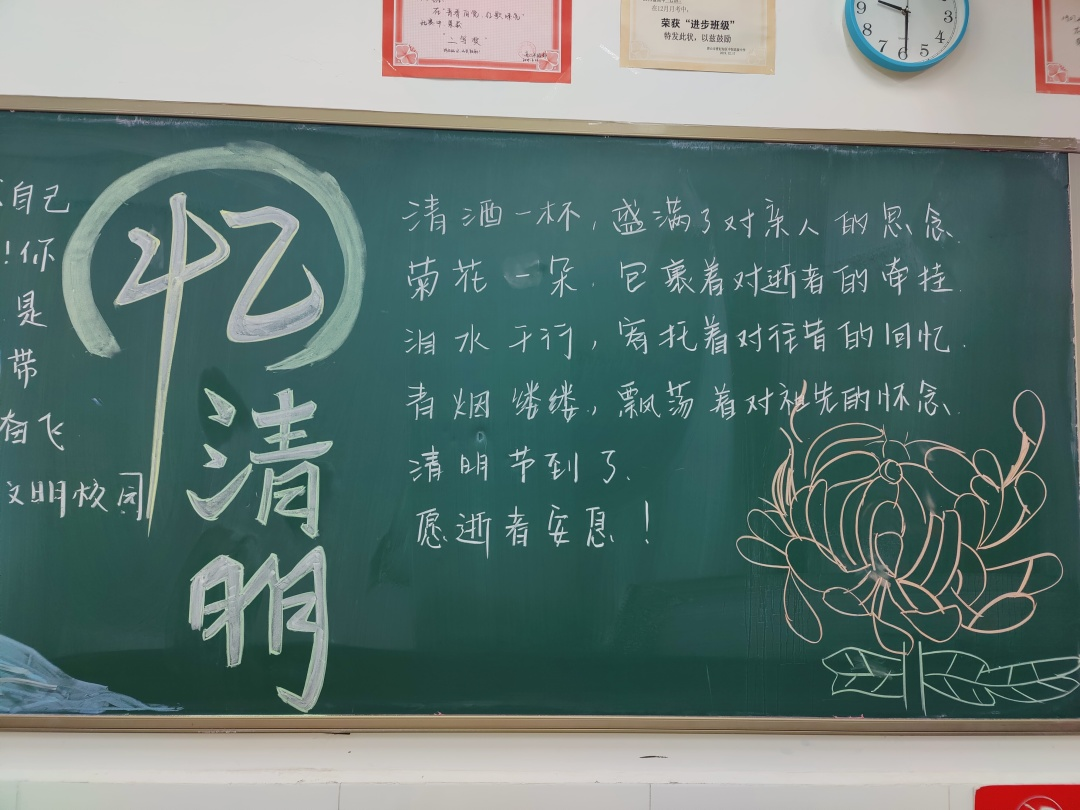 "二等奖"
荣获"进步班级"
特发此状，以兹鼓励
9
8
7
6
5
4
3
自己
！你
是
带
奋飞
文明校园
忆
清
明
清酒一杯，盛满了对亲人的思念.
菊花一朵，包裹着对逝者的牵挂.
泪水千行，寄托着对往昔的回忆.
青烟缕缕，飘荡着对祖先的怀念.
清明节到了.
愿逝者安息！